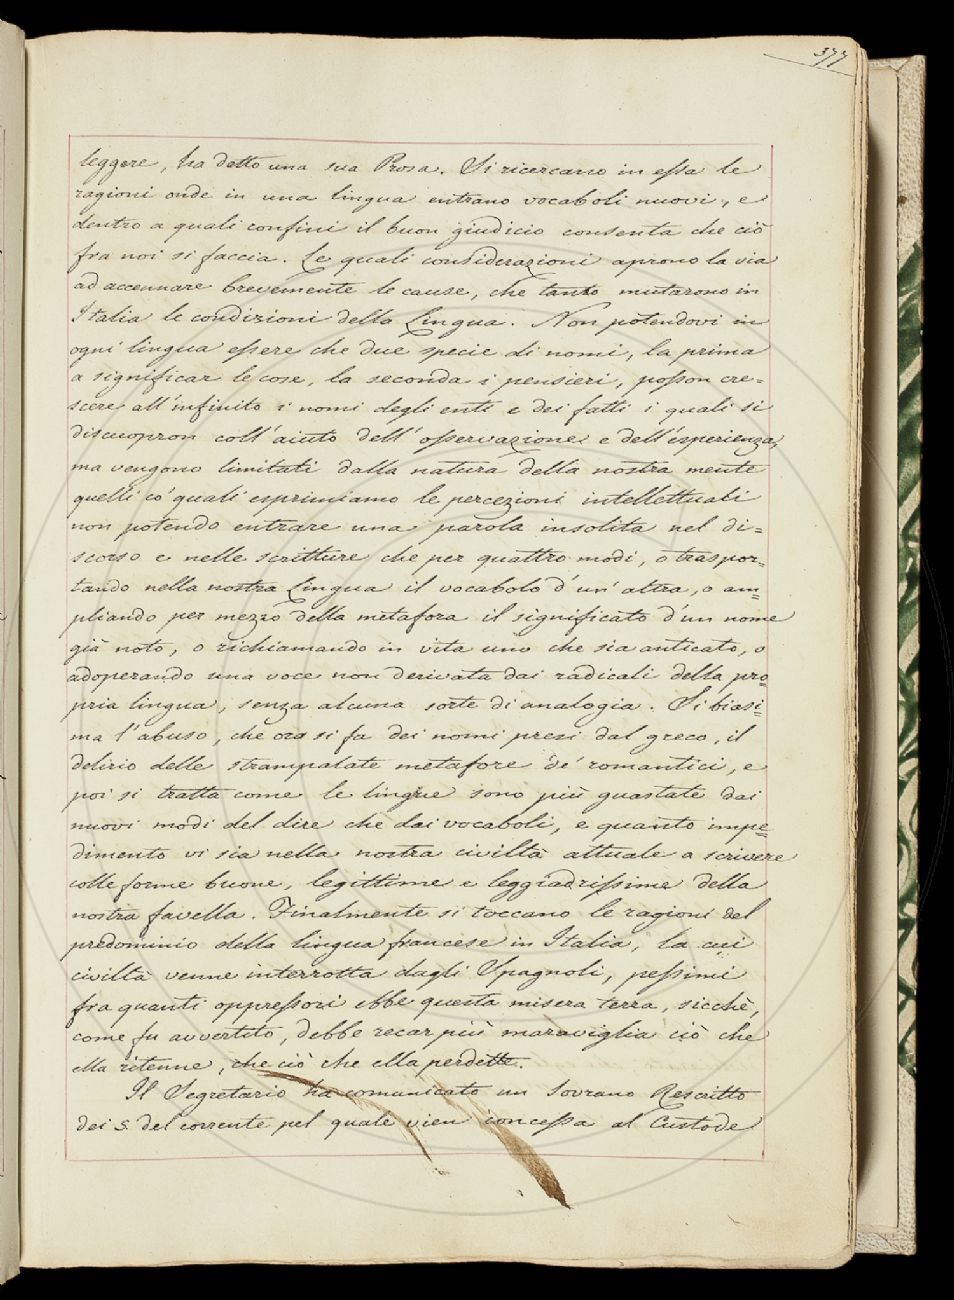 377
leggere, ha detto una sua Prosa. Si ricercano in essa le
ragioni onde in una lingua entrano vocaboli nuovi, e
dentro a quali confini il buon giudicio consenta che ciò
fra noi si faccia. Le quali considerazioni aprono la via
ad accennare brevemente le cause, che tanto mutarono in
Italia le condizioni della Lingua. Non potendovi in
ogni lingua essere che due specie di nomi, la prima
a significar le cose, la seconda i pensieri, posson cre=
scere all'infinito i nomi degli enti e dei fatti i quali si
discuopron coll'aiuto dell'osservazione e dell'esperienza,
ma vengono limitati dalla natura della nostra mente
quelli co' quali esprimiamo le percezioni intellettuali
non potendo entrare una parola insolita nel di=
scorso e nelle scritture che per quattro modi, o traspor=
tando nella nostra Lingua il vocabolo d'un'altra, o am=
pliando per mezzo della metafora il significato d'un nome
già noto, o richiamando in vita uno che sia anticato, o
adoperando una voce non derivata dai radicali della pro=
pria lingua, senza alcuna sorte di analogia. Si biasi=
ma l'abuso, che ora si fa dei nomi presi dal greco, il
delirio delle strampalate metafore de' romantici, e
poi si tratta come le lingue sono più guastate dai
nuovi modi del dire che dai vocaboli, e quanto impe=
dimento vi sia nella nostra civiltà attuale a scrivere
colle forme buone, legittime e leggiadrissime della
nostra favella. Finalmente si toccano le ragioni del
predominio della lingua francese in Italia, la cui
civiltà venne interrotta dagli Spagnoli, pessimi
fra quanti oppressori ebbe questa misera terra, sicchè,
come fu avvertito, debbe recar più maraviglia ciò che
ella ritenne, che ciò che ella perdette.
Il Segretario ha comunicato un Sovrano Rescritto
dei 5. del corrente pel quale vien concessa al Custode